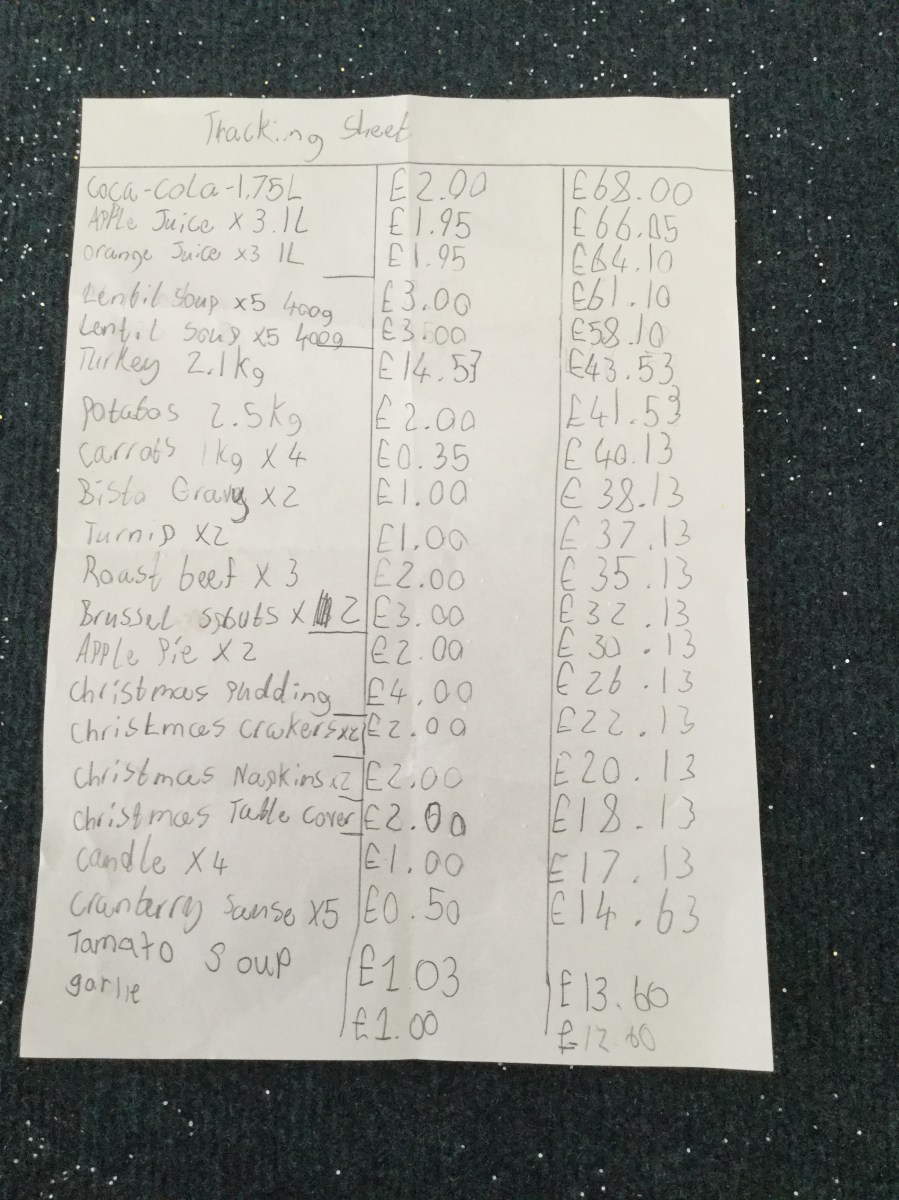 Tracking Sheet
Coca-Cola-1.75L £2.00 £68.00
Apple Juice x 3.1L £1.95 £66.05
Orange Juice x3 1L £1.95 £64.10
Lentil Soup x5 400g £3.00 £61.10
Lentil Soup x5 400g £3.00 £58.10
Turkey 2.1kg £14.53 £43.53
Potatos 2.5kg £2.00 £41.53
Carrots 1kg x 4 £0.35 £40.13
Bisto Gravy x2 £1.00 £38.13
Turnip x2 £1.00 £37.13
Roast beef x 3 £2.00 £35.13
Brussel x 2 £3.00 £32.13
Apple Pie x 2 £2.00 £30.13
Christmas Pudding £4.00 £26.13
Christmas Crakers x2 £2.00 £22.13
Christmas Napkins x2 £2.00 £20.13
Christmas Table Cover £2.00 £18.13
Candle x4 £1.00 £17.13
Cranberry Sause x5 £0.50 £14.63
Tamato Soup £1.03 £13.60
garlic £1.00 £12.60